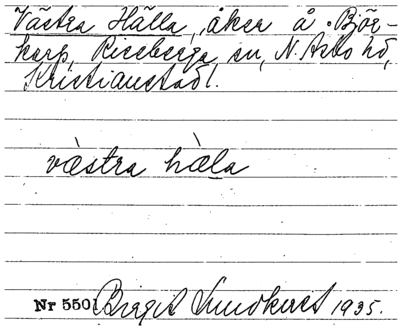 Västra Hälla, åker å Björ-
karp, Riseberga sn, N. Åsbo hd,
Kristianstad l.
västra hàla
Nr 5501 Birgit Lundkvist 1935.